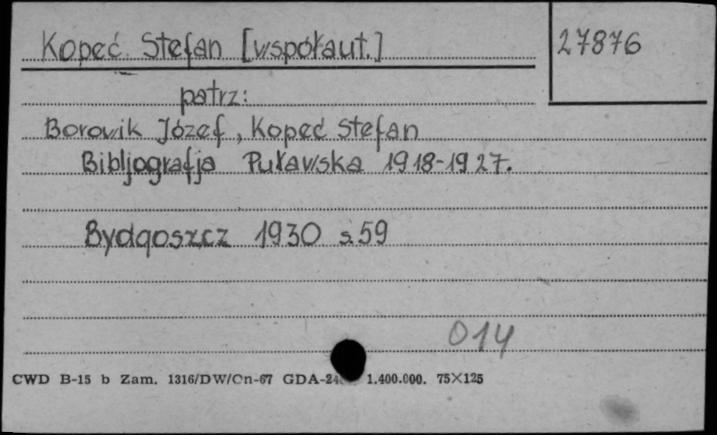 Kopeć Stefan [współaut.]
27876
patrz:
Borowik Józef, Kopeć Stefan
Bibljografja Puławska 1918-1927.
Bydgoszcz 1930 s.59
014
CWD B-15 b Zam. 1316/DW/Cn-67 GDA-24 1.400.000. 75×125